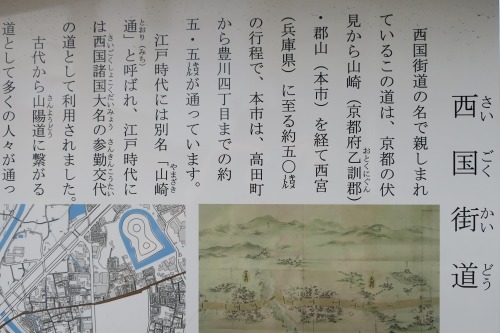 西国街道
さいごくかいどう
西国街道の名で親しまれ
ているこの道は、京都の伏
見から山崎（京都府乙訓郡）
おとくにぐん
・郡山（本市）を経て西宮
（兵庫県）に至る約五〇㌔㍍
の行程で、本市は、高田町
から豊川四丁目までの約
五・五㌔㍍が通っています。
江戸時代には別名「山崎
やまざき
通」と呼ばれ、江戸時代に
とおり（みち）
は西国諸国大名の参勤交代
さいごくしょこくだいみょう さんきんこうたい
の道として利用されました。
古代から山陽道に繋がる
さんようどう
道として多くの人々が通っ